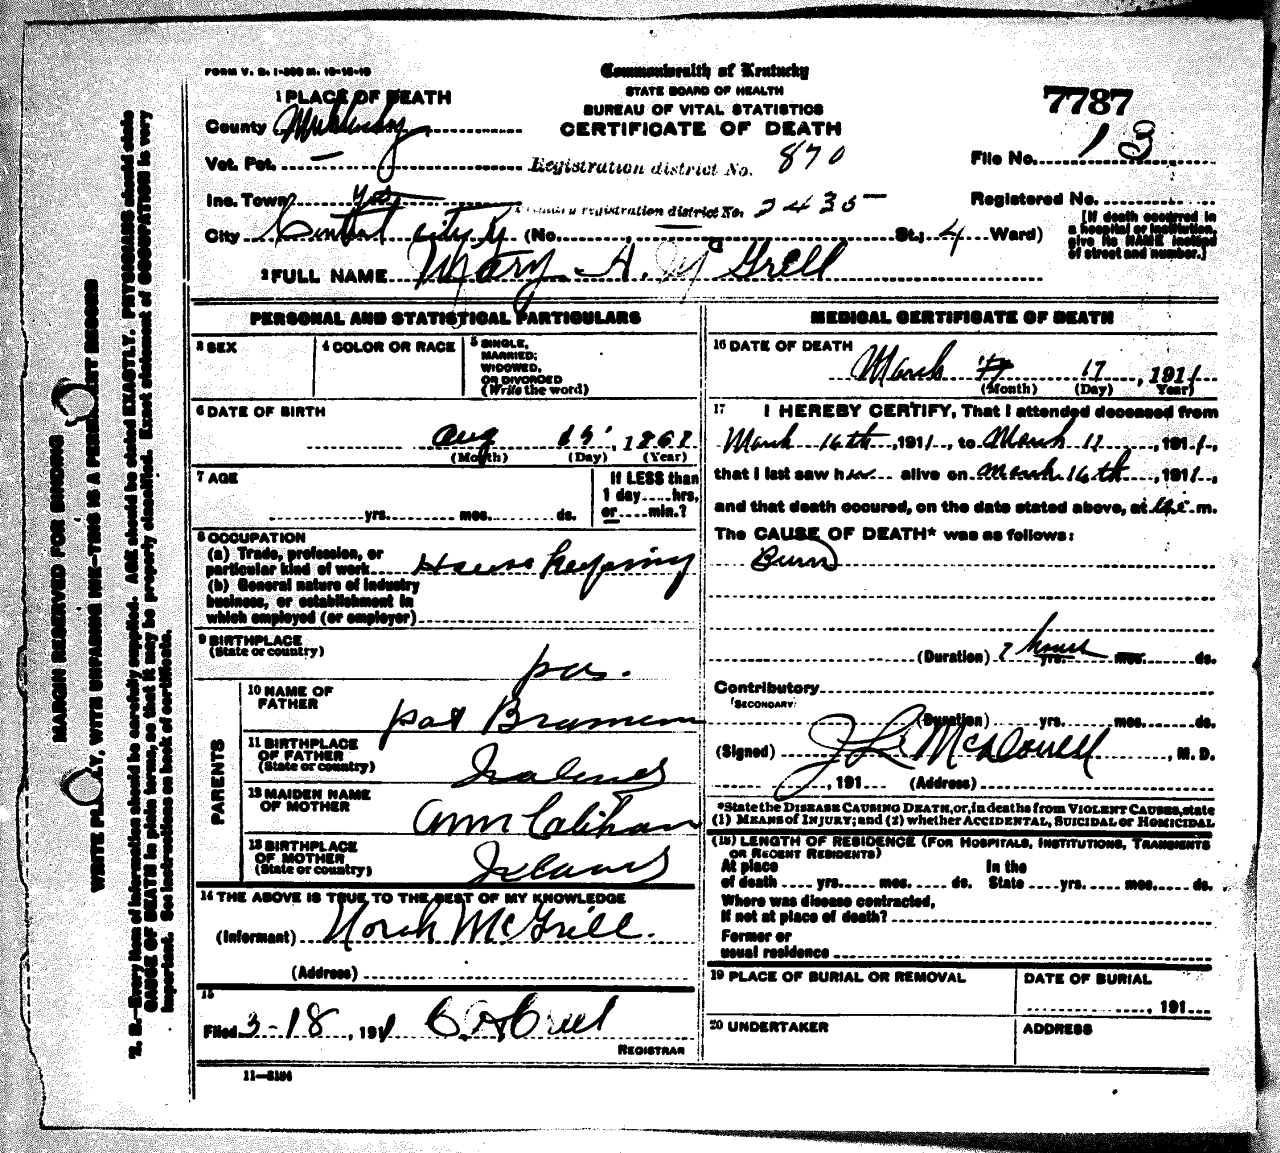 FORM V. S. 1-300 M. 10-15-10
Commonwealth of Kentucky
STATE BOARD OF HEALTH
BUREAU OF VITAL STATISTICS
CERTIFICATE OF DEATH
7787
1 PLACE OF DEATH
County Muhlenberg
Vot. Pct. —
Registration district No. 870
File No. 13
Inc. Town yes
registration district No. 2435
Registered No.
City Central city Ky (No. , St.; 4 Ward)
[If death occurred in a hospital or institution, give its NAME instead of street and number.]
2 FULL NAME Mary A. McGrell
PERSONAL AND STATISTICAL PARTICULARS
3 SEX
4 COLOR OR RACE
5 SINGLE, MARRIED, WIDOWED, OR DIVORCED (Write the word)
6 DATE OF BIRTH
Aug 15, 1868
(Month) (Day) (Year)
7 AGE
yrs. mos. ds.
If LESS than 1 day hrs, or min.?
8 OCCUPATION
(a) Trade, profession, or particular kind of work House keeping
(b) General nature of industry business, or establishment in which employed (or employer)
9 BIRTHPLACE (State or country)
pa.
PARENTS
10 NAME OF FATHER
pat
11 BIRTHPLACE OF FATHER (State or country)
12 MAIDEN NAME OF MOTHER
Ann Calihan
13 BIRTHPLACE OF MOTHER (State or country)
14 THE ABOVE IS TRUE TO THE BEST OF MY KNOWLEDGE
(Informant) Norah McGrill.
(Address)
15
Filed 3-18, 1911
REGISTRAR
11—3184
MEDICAL CERTIFICATE OF DEATH
16 DATE OF DEATH
March 17, 1911
(Month) (Day) Year)
17 I HEREBY CERTIFY, That I attended deceased from
March 16th, 1911, to March 17, 1911,
that I last saw her alive on March 16th, 1911,
and that death occured, on the date stated above, at m.
The CAUSE OF DEATH* was as follows:
Burn
(Duration) 7 hours yrs. mos. ds.
Contributory
(SECONDARY)
(Duration) yrs. mos. ds.
(Signed) J L McDowell, M. D.
, 191 (Address)
*State the DISEASE CAUSING DEATH, or, in deaths from VIOLENT CAUSES, state
(1) MEANS of INJURY; and (2) whether ACCIDENTAL, SUICIDAL or HOMICIDAL
(18) LENGTH OF RESIDENCE (FOR HOSPITALS, INSTITUTIONS, TRANSIENTS OR RECENT RESIDENTS)
At place of death yrs. mos. ds. In the State yrs. mos. ds.
Where was disease contracted, If not at place of death?
Former or usual residence
19 PLACE OF BURIAL OR REMOVAL
DATE OF BURIAL
, 191
20 UNDERTAKER
ADDRESS
MARGIN RESERVED FOR BINDING
WRITE PLAINLY, WITH UNFADING INK—THIS IS A PERMANENT RECORD
N. B.—Every item of information should be carefully supplied. AGE should be stated EXACTLY. PHYSICIANS should state
CAUSE OF DEATH in plain terms, so that it may be properly classified. Exact statement of OCCUPATION is very
important. See instructions on back of certificate.